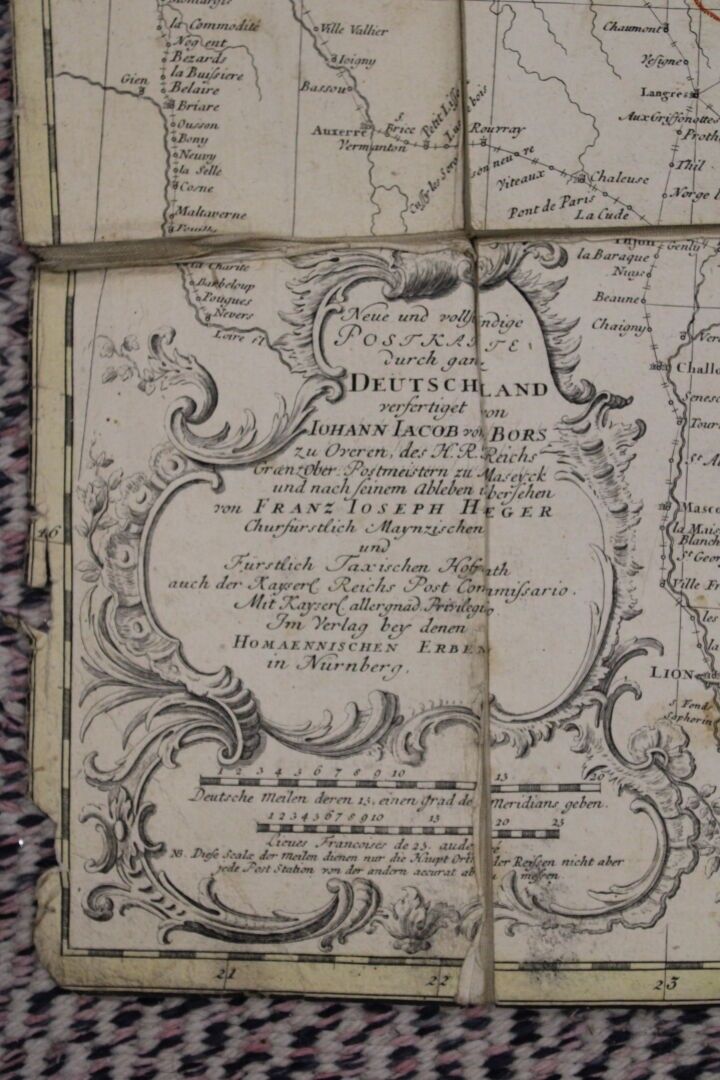 la Commodité
Nogent
Bezards
la Buissiere
Belaire
Gien
Briare
Ousson
Bony
Neuvy
la Selle
Cosne
Maltaverne
la Charite
Barbeloup
Pougues
Nevers
Loire fl
Ville Vallier
Ioigny
Bassou
Auxerre
S. Brice
Vermanton
Rourray
Viteaux
Pont de Paris
La Cude
Chaleuse
Chaumont
Vesigne
Langres
Aux Griffonottes
Proth
Thil
Norge
Genly
la Baraque
Nuys
Beaune
Chaigny
Challo
Tour
Masco
la Mais
Blanch
St Geor
Ville Fr
les
la
LION
S. Fond
Neue und vollständige
POSTKARTE
durch ganz
DEUTSCHLAND
verfertiget von
IOHANN IACOB von BORS
zu Overen, des H.R. Reichs
Gränz Ober-Postmeistern zu Maseyck
und nach seinem ableben übersehen
von FRANZ IOSEPH HEGER
Churfürstlich Maynzischen
und
Fürstlich Taxischen Hofrath
auch der Kayserl Reichs Post Commissario.
Mit Kayserl allergnäd. Privilegio
Im Verlag bey denen
HOMAENNISCHEN ERBEN
in Nürnberg.
1 2 3 4 5 6 7 8 9 10 15 20
Deutsche Meilen deren 15. einen Grad des Meridians geben.
1 2 3 4 5 6 7 8 9 10 15 20 25
Lieues Francoises de 25. au degré
NB. Diese Scalæ der meilen dienen nur die Haupt Orte der Reissen nicht aber
jede Post Station von der andern accurat ab zu messen.
46
21 22 23